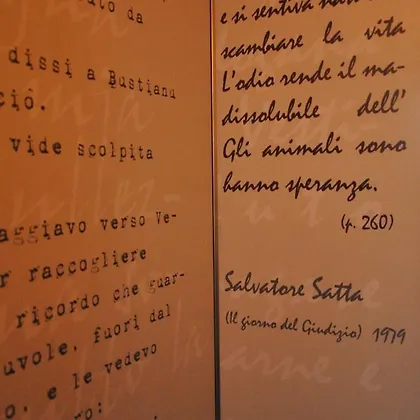 uto da
dissi a Bustianu
ciô.
vide scolpita
aggiavo verso Ve-
r raccogliere
ricordo che guar-
uvole, fuori dal
o, e le vedevo
e si sentiva
scambiare la vita
L'odio rende il ma-
dissolubile dell'
Gli animali sono
hanno speranza.
(p. 260)
Salvatore Satta
(Il giorno del Giudizio) 1979